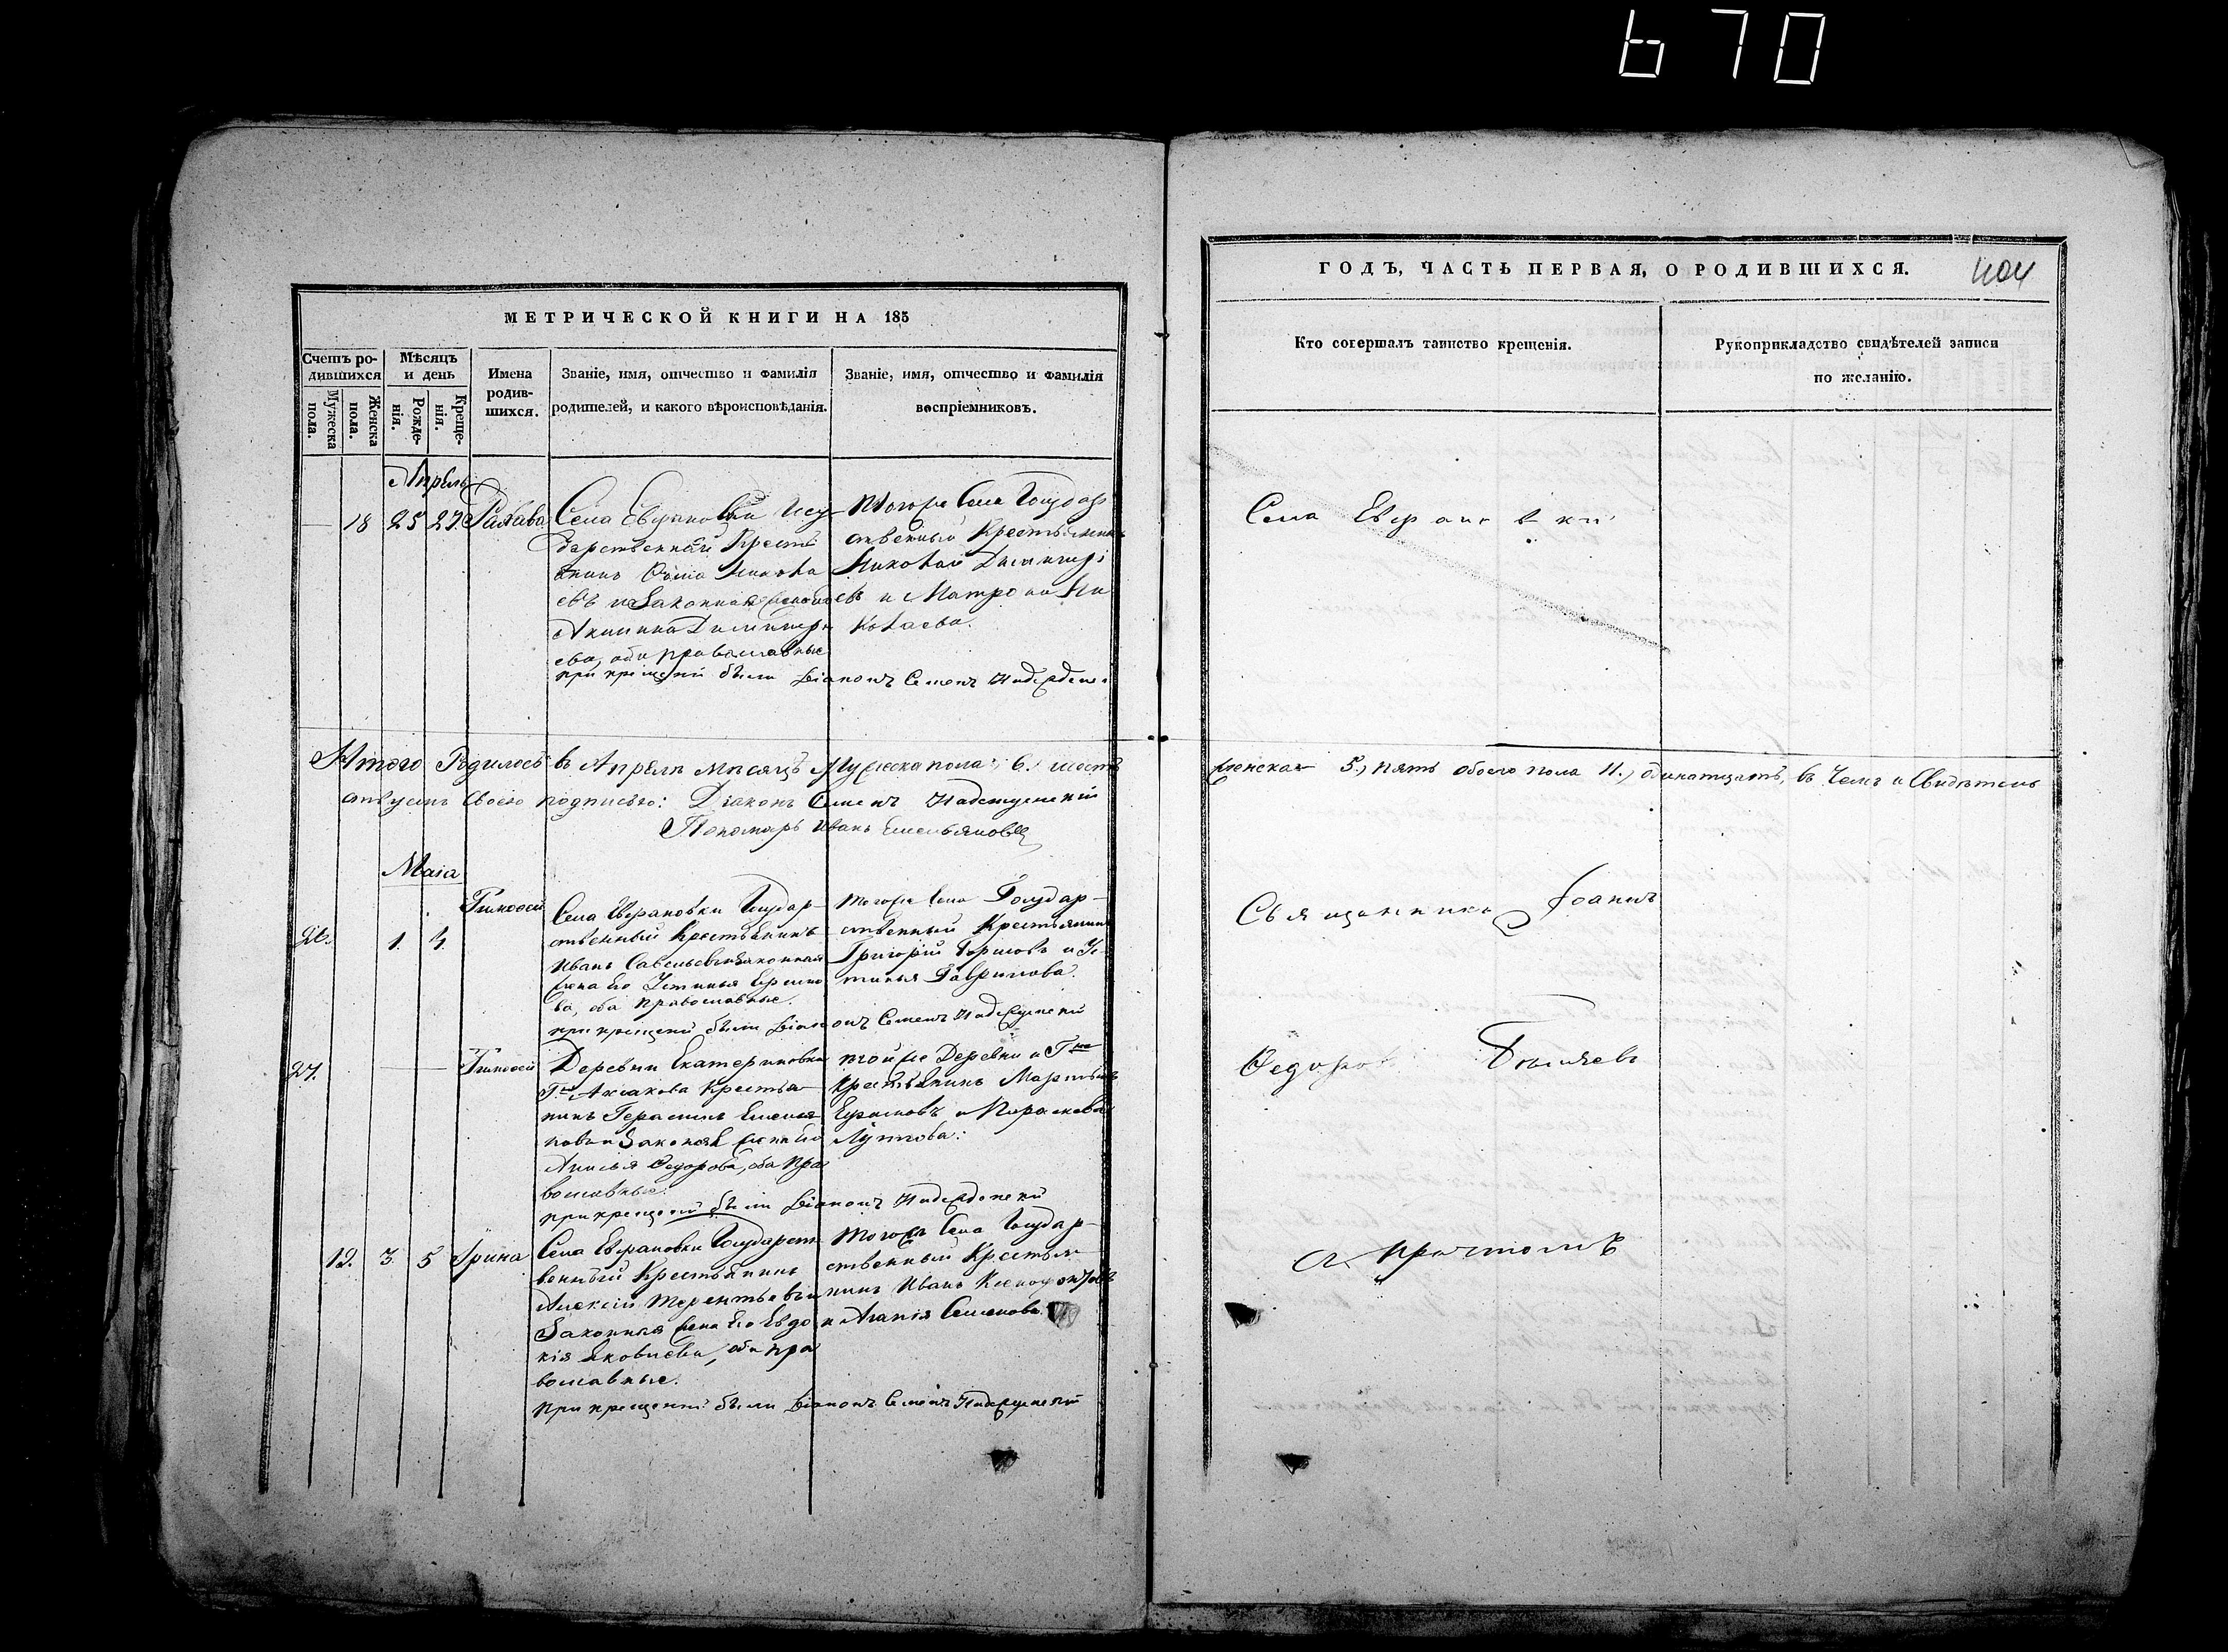 670
МЕТРИЧЕСКОЙ КНИГИ НА 185
Счетъ ро-
дившихся
Мужеска
пола.
Женска
пола.
Мѣсяцъ
и день
Рожде-
нія.
Креще-
нія.
Имена
родив-
шихся.
Званіе, имя, отчество и фамилія
родителей, и какого вѣроисповѣданія.
Званіе, имя, отчество и фамилія
воспріемниковъ.
Апрель
18 25 27
Села
дарственный Кресть
янинъ
евъ и Законная
Акилина Димитри
ева, оба православные
При крещеніи были Діаконъ Семенъ
Тогоже Села Государ
ственный Крестьянинъ
Николай Димитрі
евъ и Матрона Ни
колаева.
Итого Родилось въ Апрелѣ мѣсяцѣ Мужеска пола 6. шесть
своею подписью: Діаконъ Семенъ
Пономарь Иванъ Емельяновъ
Маія
Тимофей
1. 4.
Села Евграновки Государ-
ственный Крестьянинъ
Иванъ Савельевъ и Законная
жена его Устинья
ва, оба православные.
при крещеніи были Діаконъ Семенъ
тогоже Села Государ-
ственный Крестьянинъ
Григорій Борисовъ и Ус-
тинья Гаврилова.
27.
Тимофей
Деревни Екатериновки
Г-на Аксакова Крестья
нинъ Герасимъ Емелья
новъ и Законная жена его
Анисья Федорова, оба пра
вославные.
при крещеніи были Діаконъ
тойже Деревни и Г-на
Крестьянинъ Мартынъ
и Параскева
12. 3. 5 Ирина
Села Евграновки Государст
венный Крестьянинъ
Алексій Терентьевъ и
Законная жена его Евдо
кія Яковлева, оба пра
вославные.
При крещеніи были Діаконъ Семенъ
Тогоже Села Государ-
ственный Крестья
нинъ Иванъ Ксенофонтовъ
и Агапія Семенова.
ГОДЪ, ЧАСТЬ ПЕРВАЯ, О РОДИВШИХСЯ.
404
Кто совершалъ таинство крещенія.
Рукоприкладство свидѣтелей записи
по желанію.
Села
женска 5., пять обоего пола 11., одинатцать, въ чемъ и Свидѣтель
Священникъ Іоаннъ
Федоровъ
съ причтомъ